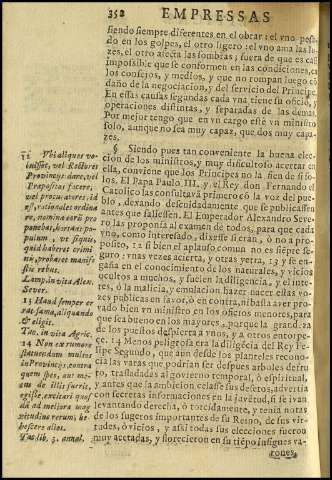 352 EMPRESSAS
siendo siempre diferentes en el obrar: el vno pesa-
do en los golpes, el otro ligero: el vno ama las lu-
zes, el otro afecta las sombras; fuera de que es casi
impossible que se conformen en las condiciones, en
los consejos, y medios, y que no rompan luego cõ
daño de la negociacion, y del servicio del Principe.
En essas causas segundas cada vna tiene su oficio, y
operaciones distintas, y separadas de las demas.
Por mejor tengo que en vn cargo esté vn ministro
solo, aunque no sea muy capaz, que dos muy capa-
zes.
§ Siendo pues tan conveniente la buena elec-
cion de los ministros, y muy dificultoso acertar en
ella, conviene que los Principes no la fien de si so-
los. El Papa Paulo III. y el Rey don Fernando el
Catolico las consultavã primero cõ la voz de pue-
blo, dexando descuidadamente que se publicassen
antes que saliessen. El Emperador Alexandro Seve-
ro las proponia al examen de todos, para que cada
vno, como interesado, dixesse si eran, ó no a pro-
posito, 12 si bien el aplauso comun no es siẽpre se-
guro: vnas vezes acierta, y otras yerra, 13 y se en-
gaña en el conocimiento de los naturales, y vicios
ocultos a muchos, y suelen la diligencia, y el inte-
res, ó la malicia, y emulacion hazer nacer estas vo-
zes publicas en favor, ó en contra, ni basta aver pro-
vado bien vn ministro en los oficios menores, para
que sea bueno en los mayores, porque la grandeza
de los puestos despierta a vnos, y a otros entorpe-
ce. 14 Menos peligrosa era la diligẽcia del Rey Fe-
lipe Segundo, que aun desde los planteles recono-
cia las varas que podrian ser despues arboles de fru-
to, trasladadas al governo temporal, ó espiritual,
y antes que la ambicion celasse sus defetos, advertia
con secretas informaciones en la juvētud, si se ivan
levantando derecha, ó torcidamente, y tenia notas
de los sugetos importantes de su Reino, de sus vir-
tudes, ó vicios, y assi todas sus elecciones fueron
muy acertadas, y florecieron en su tiẽpo insignes va-
rones,
12 Vbi aliquos vo-
luisset, vel Rectores
Provincijs dare, vel
Præpositos facere,
vel procuratores, id
est, rationales ordina
re, nomina eorũ pro
ponebat, hortans po-
pulum, vt siquis
quid haberet crimi-
ni, probaret manifes
tis rebus.
Lamp. in vita Alex.
Sever.
13 Haud semper er
rat fama, aliquando
& eligit.
Tac. in vita Agric.
14 Non ex rumore
statuendum multos
in Provincijs contra
quam spes, aut me-
tus de illis fuerit,
egisse, excitari quos
dã ad meliora mag
nitudine rerum, he-
bescere alios.
Tac. lib. 3. annal.